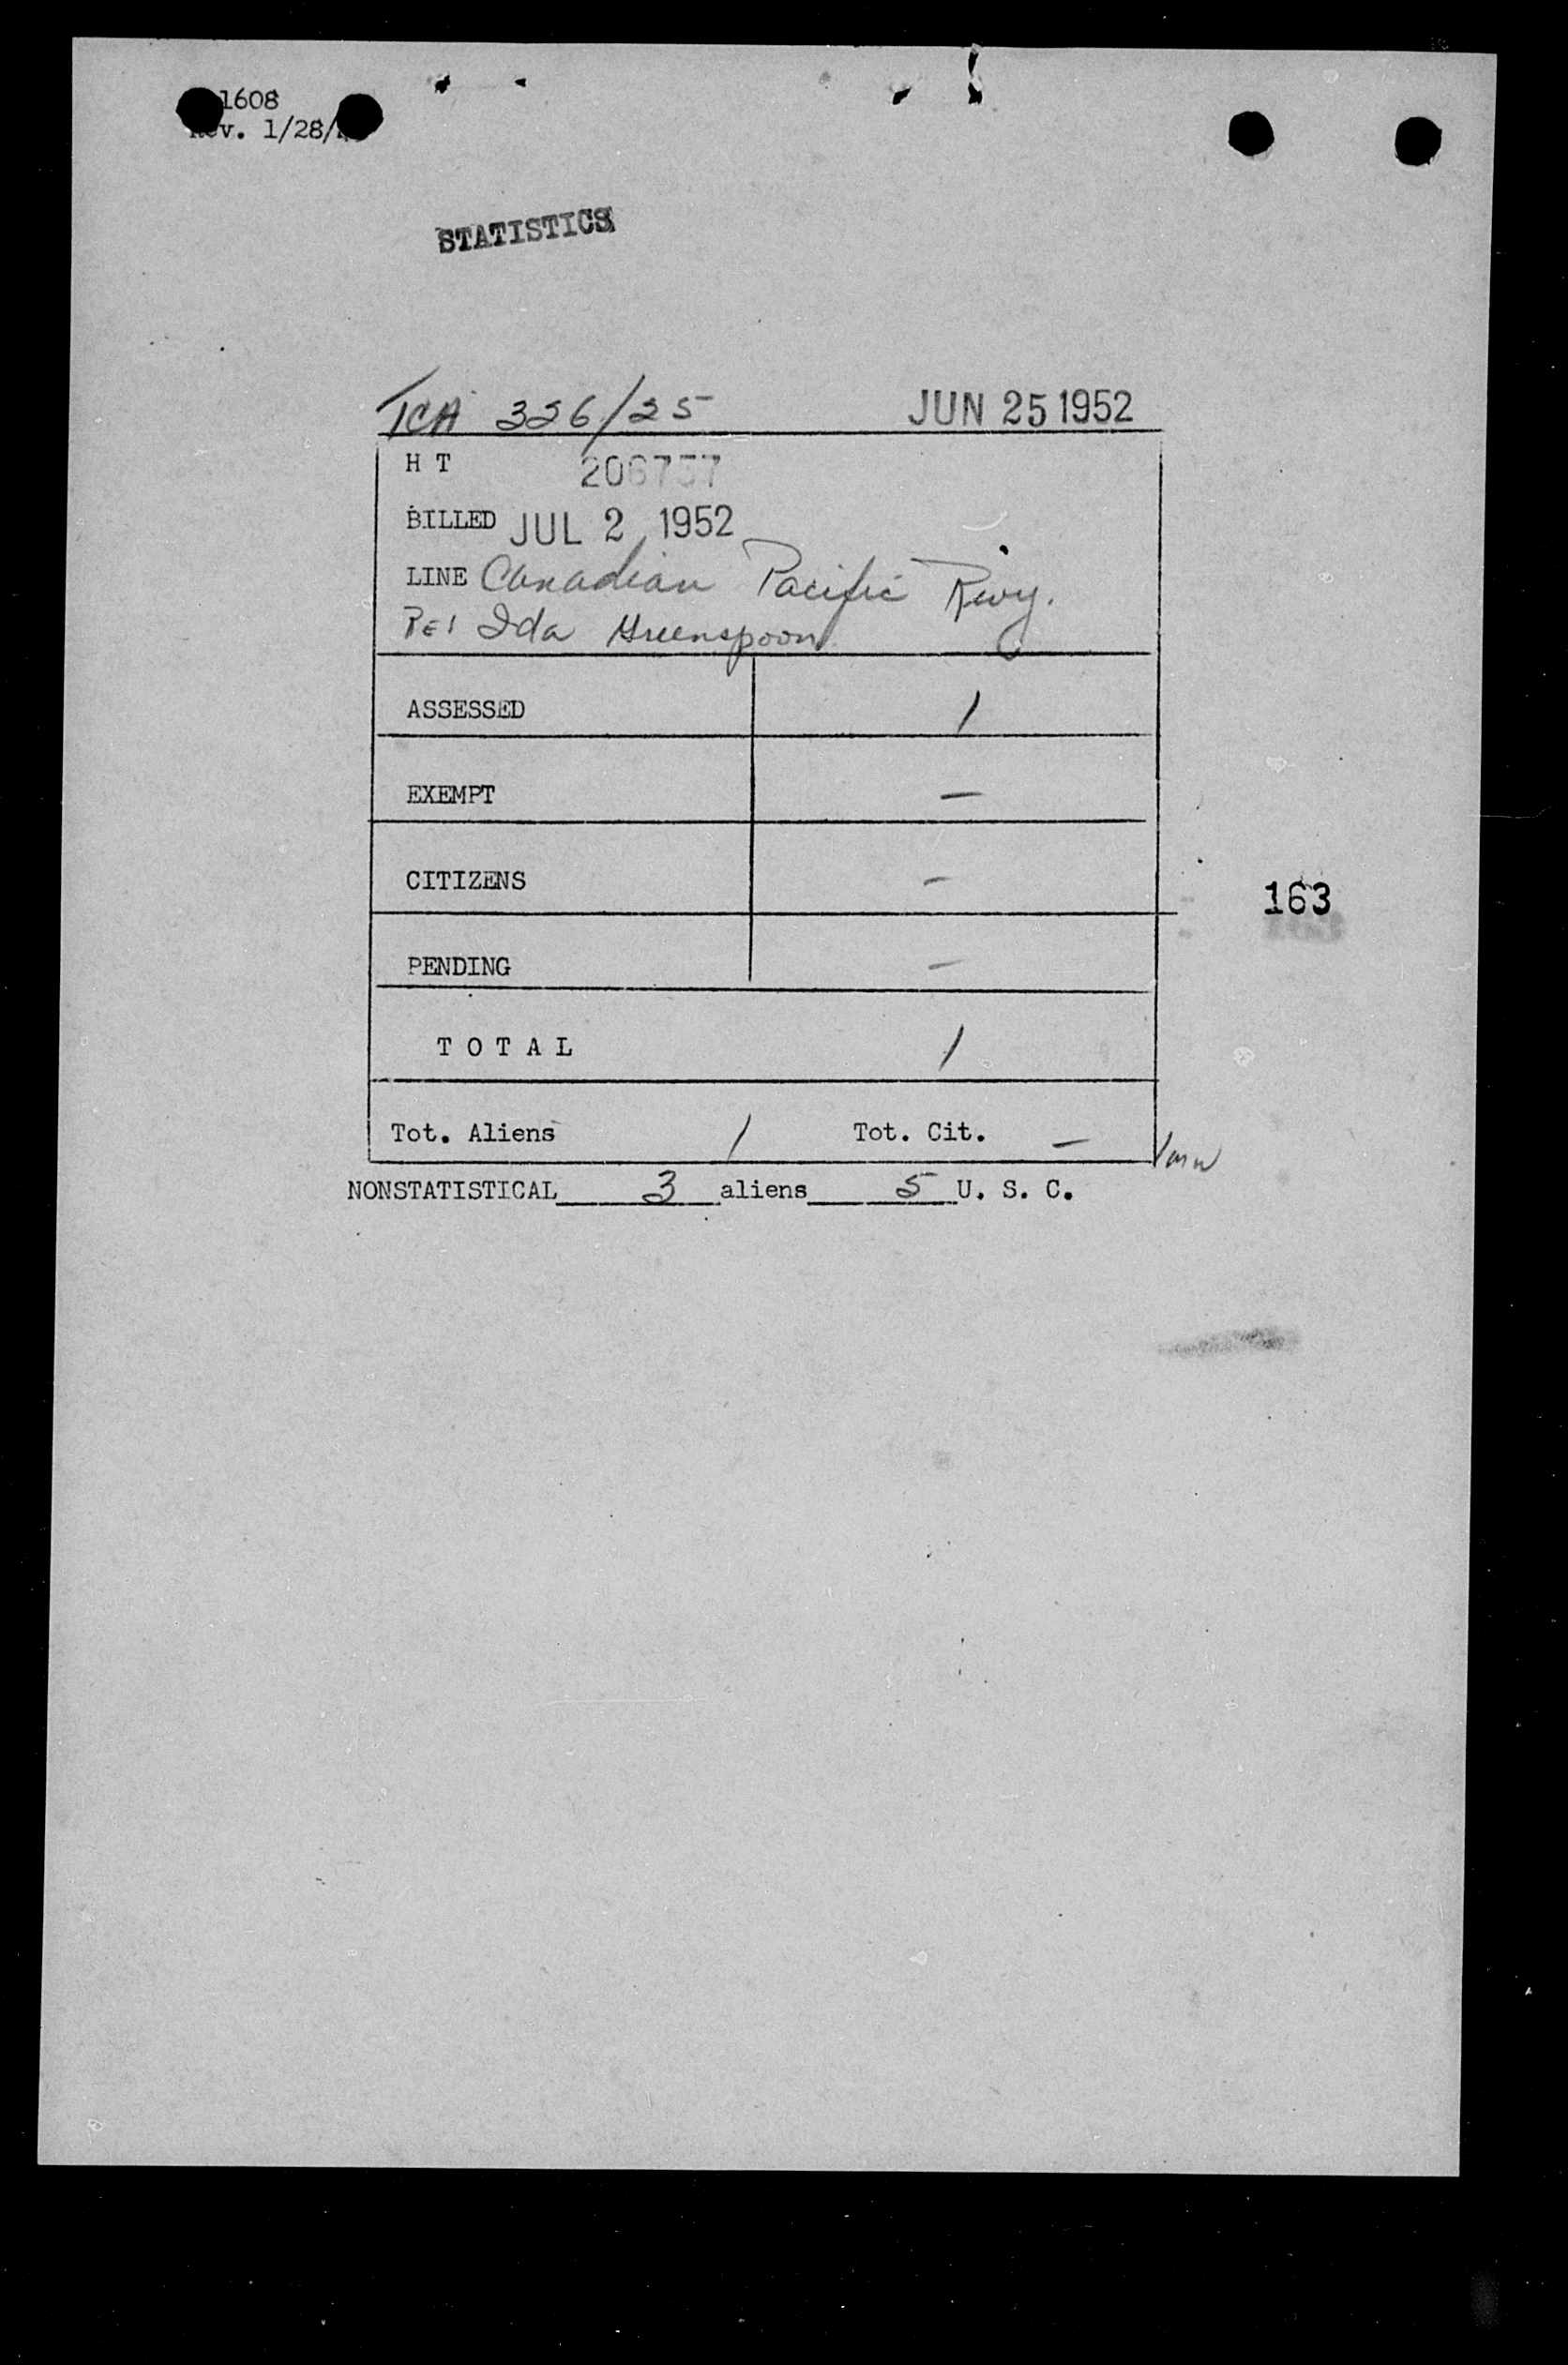 1608
Rev. 1/28/
STATISTICS
TCA 326/25 JUN 25 1952
H T 206757
BILLED JUL 2 1952
LINE Canadian Pacific Rwy.
Re: Ida Greenspoon
ASSESSED 1
EXEMPT —
CITIZENS —
163
PENDING —
TOTAL 1
Tot. Aliens 1 Tot. Cit. —
NONSTATISTICAL 3 aliens 5 U. S. C.